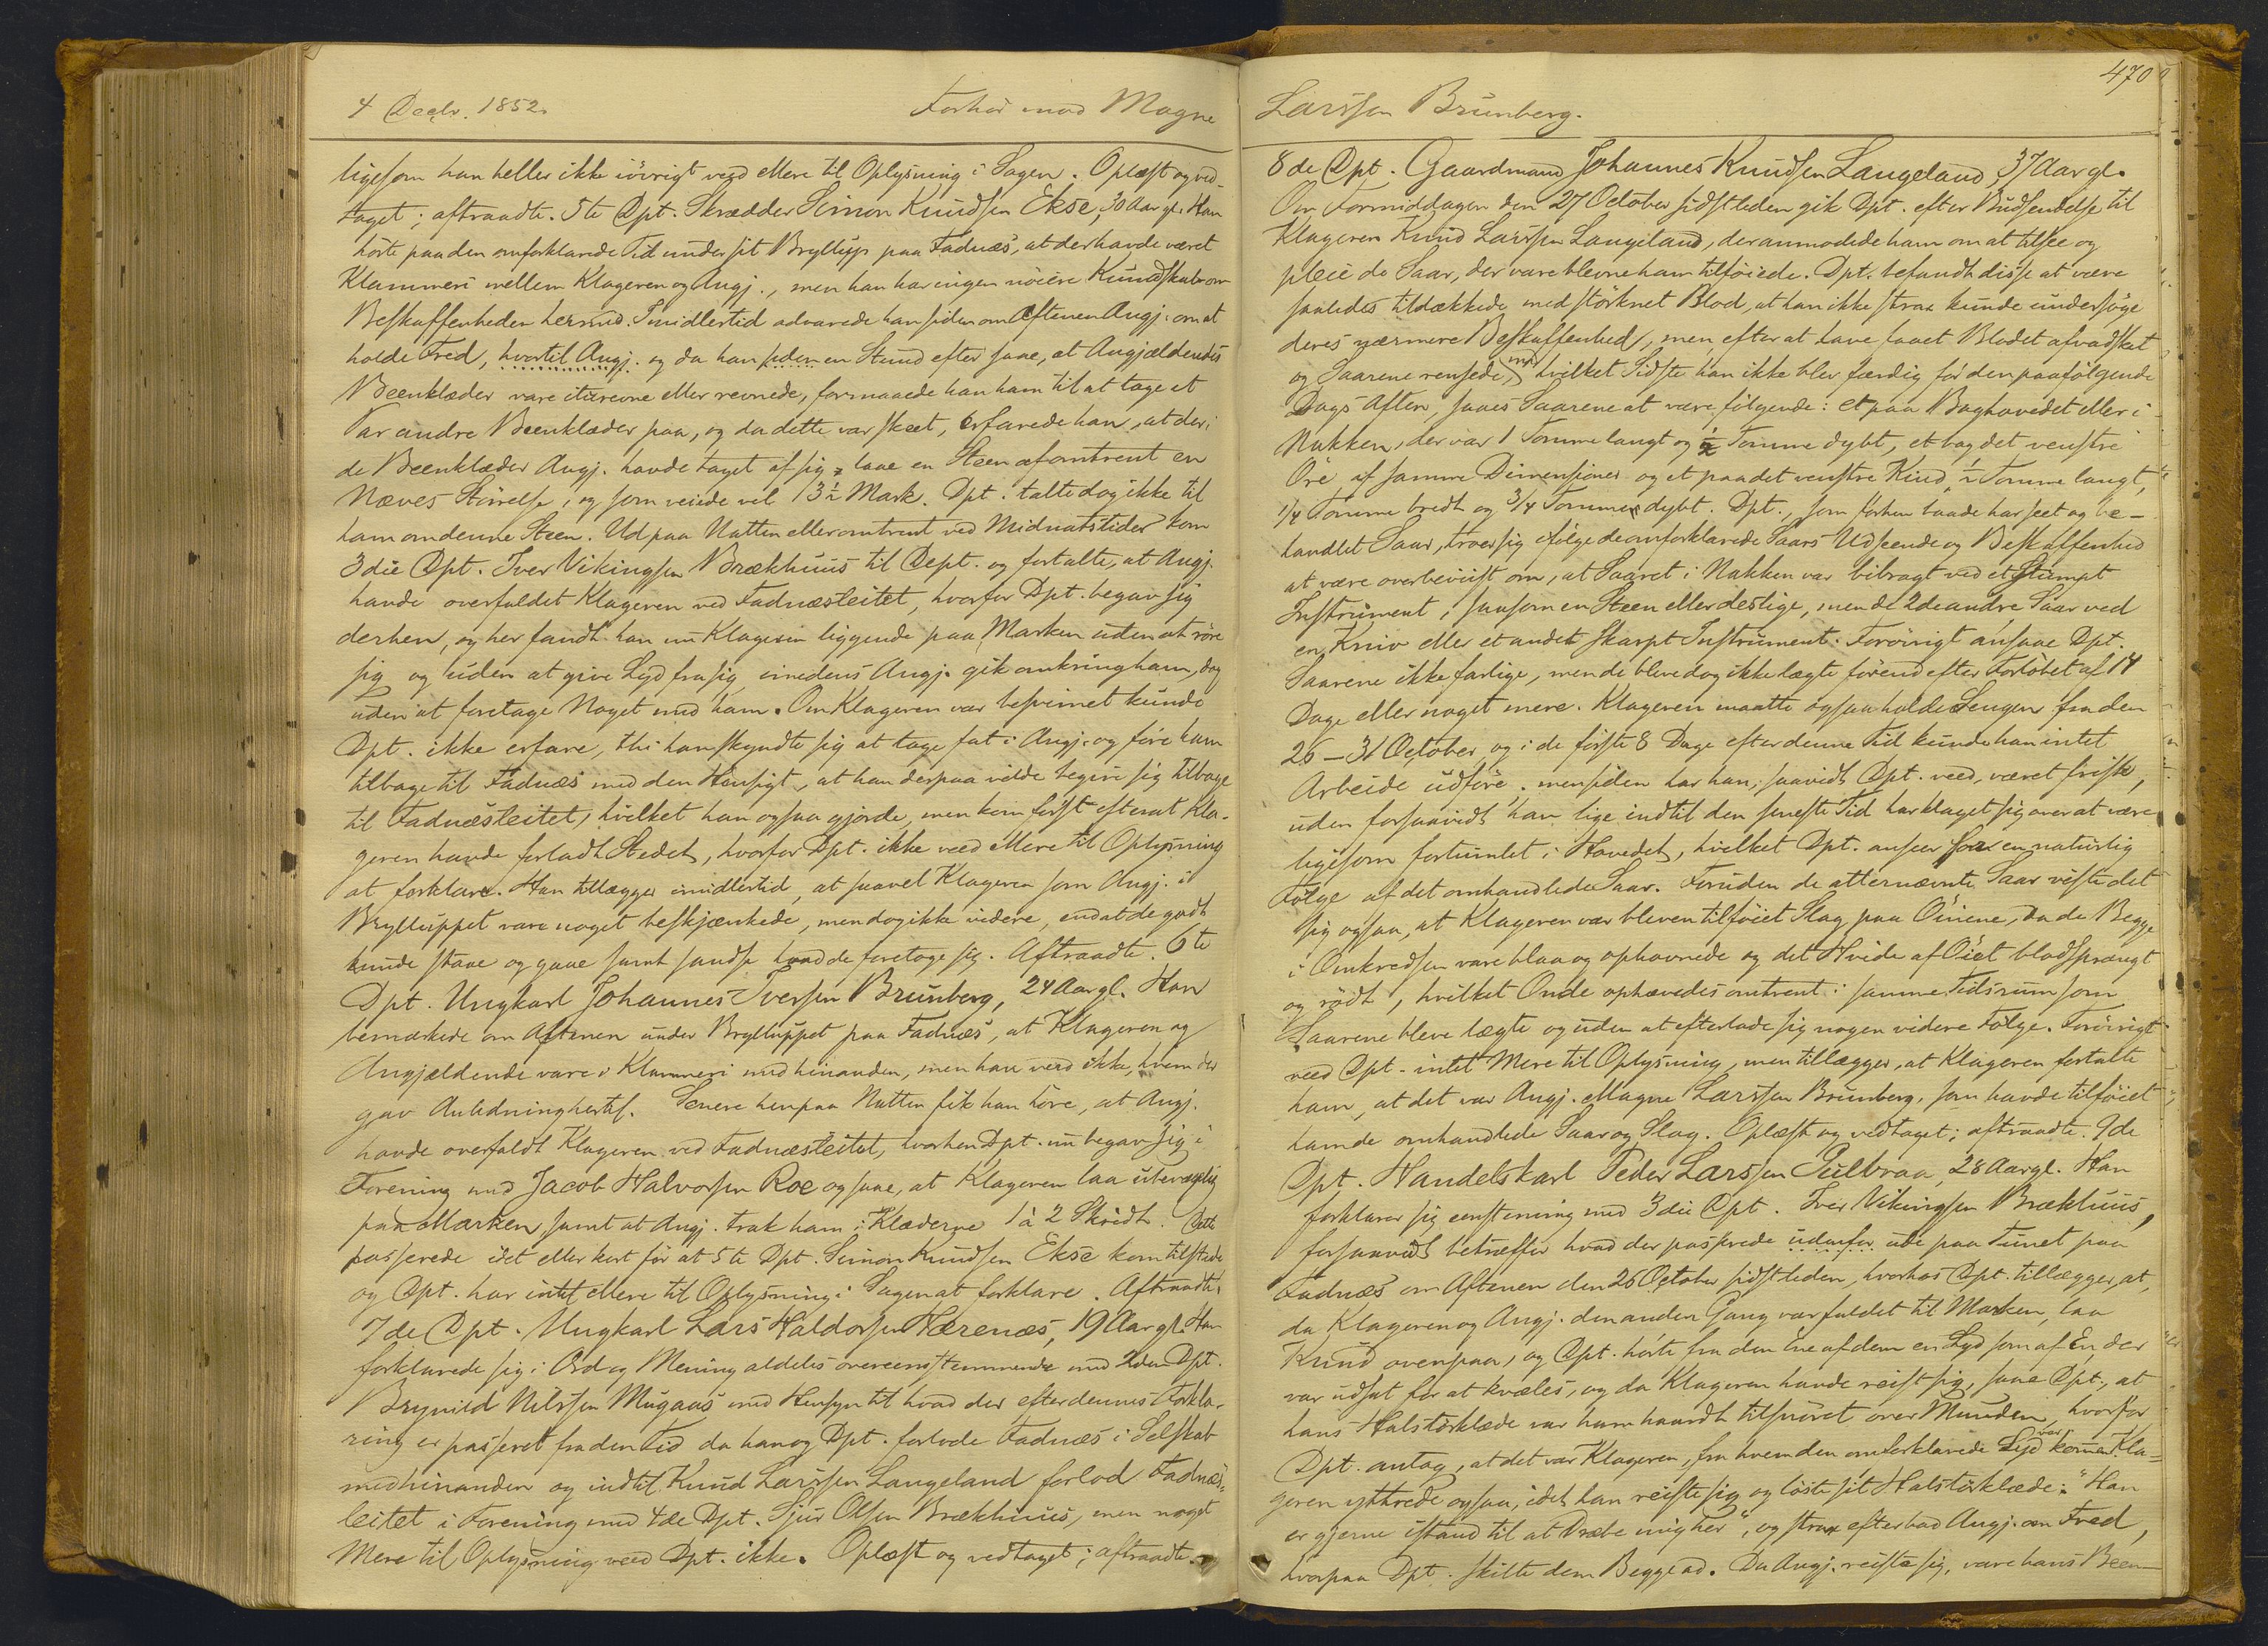 4 Decbr. 1852.
Forhör mod Magne
ligesom han heller ikke iövrigt veed Mere til Oplysning i Sagen. Oplæst og ved-
taget; aftraadte. 5te Dpt. Skrædder Simon Knudsen Ekse, 30 Aar gl. Han
hörte paa den omforklarede Tid under sit Bryllup paa Fadnæs, at der havde været
Klammeri mellem Klageren og Angj., men han har ingen nöiere Kundskab om
Beskaffenheden hermed. Imidlertid advarede han siden om Aftenen Angj. om at
holde Fred, hvortil Angj. og da han siden en Stund efter saae, at Angjældendes
Beenklæder vare iturevne eller revnede, formaaede han ham til at tage et
Par andre Beenklæder paa, og da dette var skeet, erfarede han, at der i
de Beenklæder Angj. havde taget af sig, laae en Steen af omtrent en
Næves Störrelse, og som veiede vel 13½ Mark. Dpt. talte dog ikke til
ham om denne Steen. Ud paa Natten eller omtrent ved Midnatstider kom
3die Dpt. Iver Vikingsen Brækhuus til Dept. og fortalte, at Angj.
havde overfaldet Klageren ved Fadnæsleitet, hvorfor Dpt. begav sig
derhen, og her fandt han nu Klageren liggende paa Marken uden at röre
sig og uden at give Lyd fra sig, imedens Angj. gik omkring ham, dog
uden at foretage Noget med ham. Om Klageren var besvimet kunde
Dpt. ikke erfare, thi han skyndte sig at tage fat i Angj. og före ham
tilbage til Fadnæs med den Hensigt, at han derpaa vilde begive sig tilbage
til Fadnæsleitet, hvilket han ogsaa gjorde, men kom först efterat Kla-
geren havde forladt Stedet, hvorfor Dpt. ikke veed Mere til Oplysning
at forklare. Han tillægger imidlertid, at saavel Klageren som Angj. i
Brylluppet vare noget beskjænkede, men dog ikke videre, end at de godt
kunde staae og gaae samt sandse hvad de foretoge sig. Aftraadte. 6te
Dpt. Ungkarl Johannes Iversen Brunberg, 24 Aar gl. Han
bemærkede om Aftenen under Brylluppet paa Fadnæs, at Klageren og
Angjældende vare i Klammeri med hinanden, men han veed ikke, hvem der
gav Anledning hertil. Senere henpaa Natten fik han höre, at Angj.
havde overfaldt Klageren ved Fadnæsleitet, hvorhen Dpt. nu begav sig i
Forening med Jacob Halvorsen Roe og saae, at Klageren laa ubevægelig
paa Marken, samt at Angj. trak ham i Klæderne 1 à 2 Skridt. Dette
passerede idet eller kort för at 5te Dpt. Simon Knudsen Ekse kom tilstede
og Dpt. har intet Mere til Oplysning i Sagen at forklare. Aftraadte.
7de Dpt. Ungkarl Lars Haldorsen Hærenæs, 19 Aar gl. Han
forklarede sig i Ord og Mening aldeles overeenstemmende med 2den Dpt.
Brynild Nilssen Mugaas med Hensyn til hvad der efter dennes Forkla-
ring er passeret fra den Tid da han og Dpt. forlode Fadnæs i Selskab
med hinanden og indtil Knud Larssen Langeland forlod Fadnæs-
leitet i Forening med 4de Dpt. Sjur Olsen Brækhuus, men noget
Mere til Oplysning veed Dpt. ikke. Oplæst og vedtaget; aftraadte.
470
Larssen Brunberg.
8de Dpt. Gaardmand Johannes Knudsen Langeland, 37 Aar gl.
Om Formiddagen den 27 October sidstleden gik Dpt. efter Budsendelse til
Klageren Knud Larssen Langeland, der anmodede ham om at tilsee og
pleie de Saar, der vare blevne ham tilföiede. Dpt. befandt disse at være
saaledes tildækkede med störknet Blod, at han ikke strax kunde undersöge
deres nærmere Beskaffenhed, men efter at have faaet Blodet afvadsket
og Saarene rensede, med hvilket Sidste han ikke blev færdig för den paafölgende
Dags Aften, saaes Saarene at være fölgende: et paa Baghovedet eller i
Nakken, der var 1 Tomme langt og ½ Tomme dybt, et bag det venstre
Öre af samme Dimensioner og et paa det venstre Kind ½ Tomme langt,
1/4 Tomme bredt og 3/4 Tomme dybt. Dpt., som förhen baade har seet og be-
handlet Saar, troer sig ifölge de omforklarede Saars Udseende og Beskaffenhed
at være overbeviist om, at Saaret i Nakken var bibragt ved et stumpt
Instrument, saasom en Steen eller deslige, men de 2de andre Saar ved
en Kniv eller et andet skarpt Instrument. Forövrigt ansaae Dpt.
Saarene ikke farlige, men de bleve dog ikke lægte förend efter Forlöbet af 14
Dage eller noget mere. Klageren maatte ogsaa holde Sengen fra den
26 – 31 October, og i de förste 8 Dage efter denne Tid kunde han intet
Arbeide udföre, men siden har han, saavidt Dpt. veed, været frisk,
uden forsaavidt han lige indtil den seneste Tid har klaget sig over at være
ligesom fortumlet i Hovedet, hvilket Dpt. anseer for en naturlig
Fölge af det omhandlede Saar. Foruden de allernævnte Saar viste det
sig ogsaa, at Klageren var bleven tilföiet Slag paa Öinene, da de Begge
i Omkredsen vare blaa og ophovnede og det Hvide af Öiet blodsprængt
og rödt, hvilket Onde ophævedes omtrent i samme Tidsrum som
Saarene bleve lægte og uden at efterlade sig nogen videre Fölge. Forövrigt
veed Dpt. intet Mere til Oplysning, men tillægger, at Klageren fortalte
ham, at det var Angj. Magne Larssen Brunberg, som havde tilföiet
ham de omhandlede Saar og Slag. Oplæst og vedtaget; aftraadte. 9de
Dpt. Handelskarl Peder Larssen Gulbraa, 28 Aar gl. Han
forklarer sig eenstemmig med 3die Dpt. Iver Vikingsen Brækhuus,
forsaavidt betræffer hvad der passerede udenfor ude paa Tunet paa
Fadnæs om Aftenen den 26 October sidstleden, hvorhos Dpt. tillægger, at,
da Klageren og Angj. den anden Gang var faldet til Marken, laa
Knud ovenpaa, og Dpt. hörte fra den Ene af dem en Lyd som af En, der
var udsat for at kvæles, og da Klageren havde reist sig, saae Dpt., at
hans Halstörklæde var ham haardt tilsnöret over Munden, hvorfor
Dpt. antog, at det var Klageren, fra hvem den omforklarede Lyd var kommen. Kla-
geren yttrede ogsaa, idet han reiste sig og löste sit Halstörklæde: "Han
er gjerne istand til at Dræbe mig her", og strax efter bad Angj. om Fred,
hvorpaa Dpt. skilte dem Begge ad. Da Angj. reiste sig, vare hans Been-